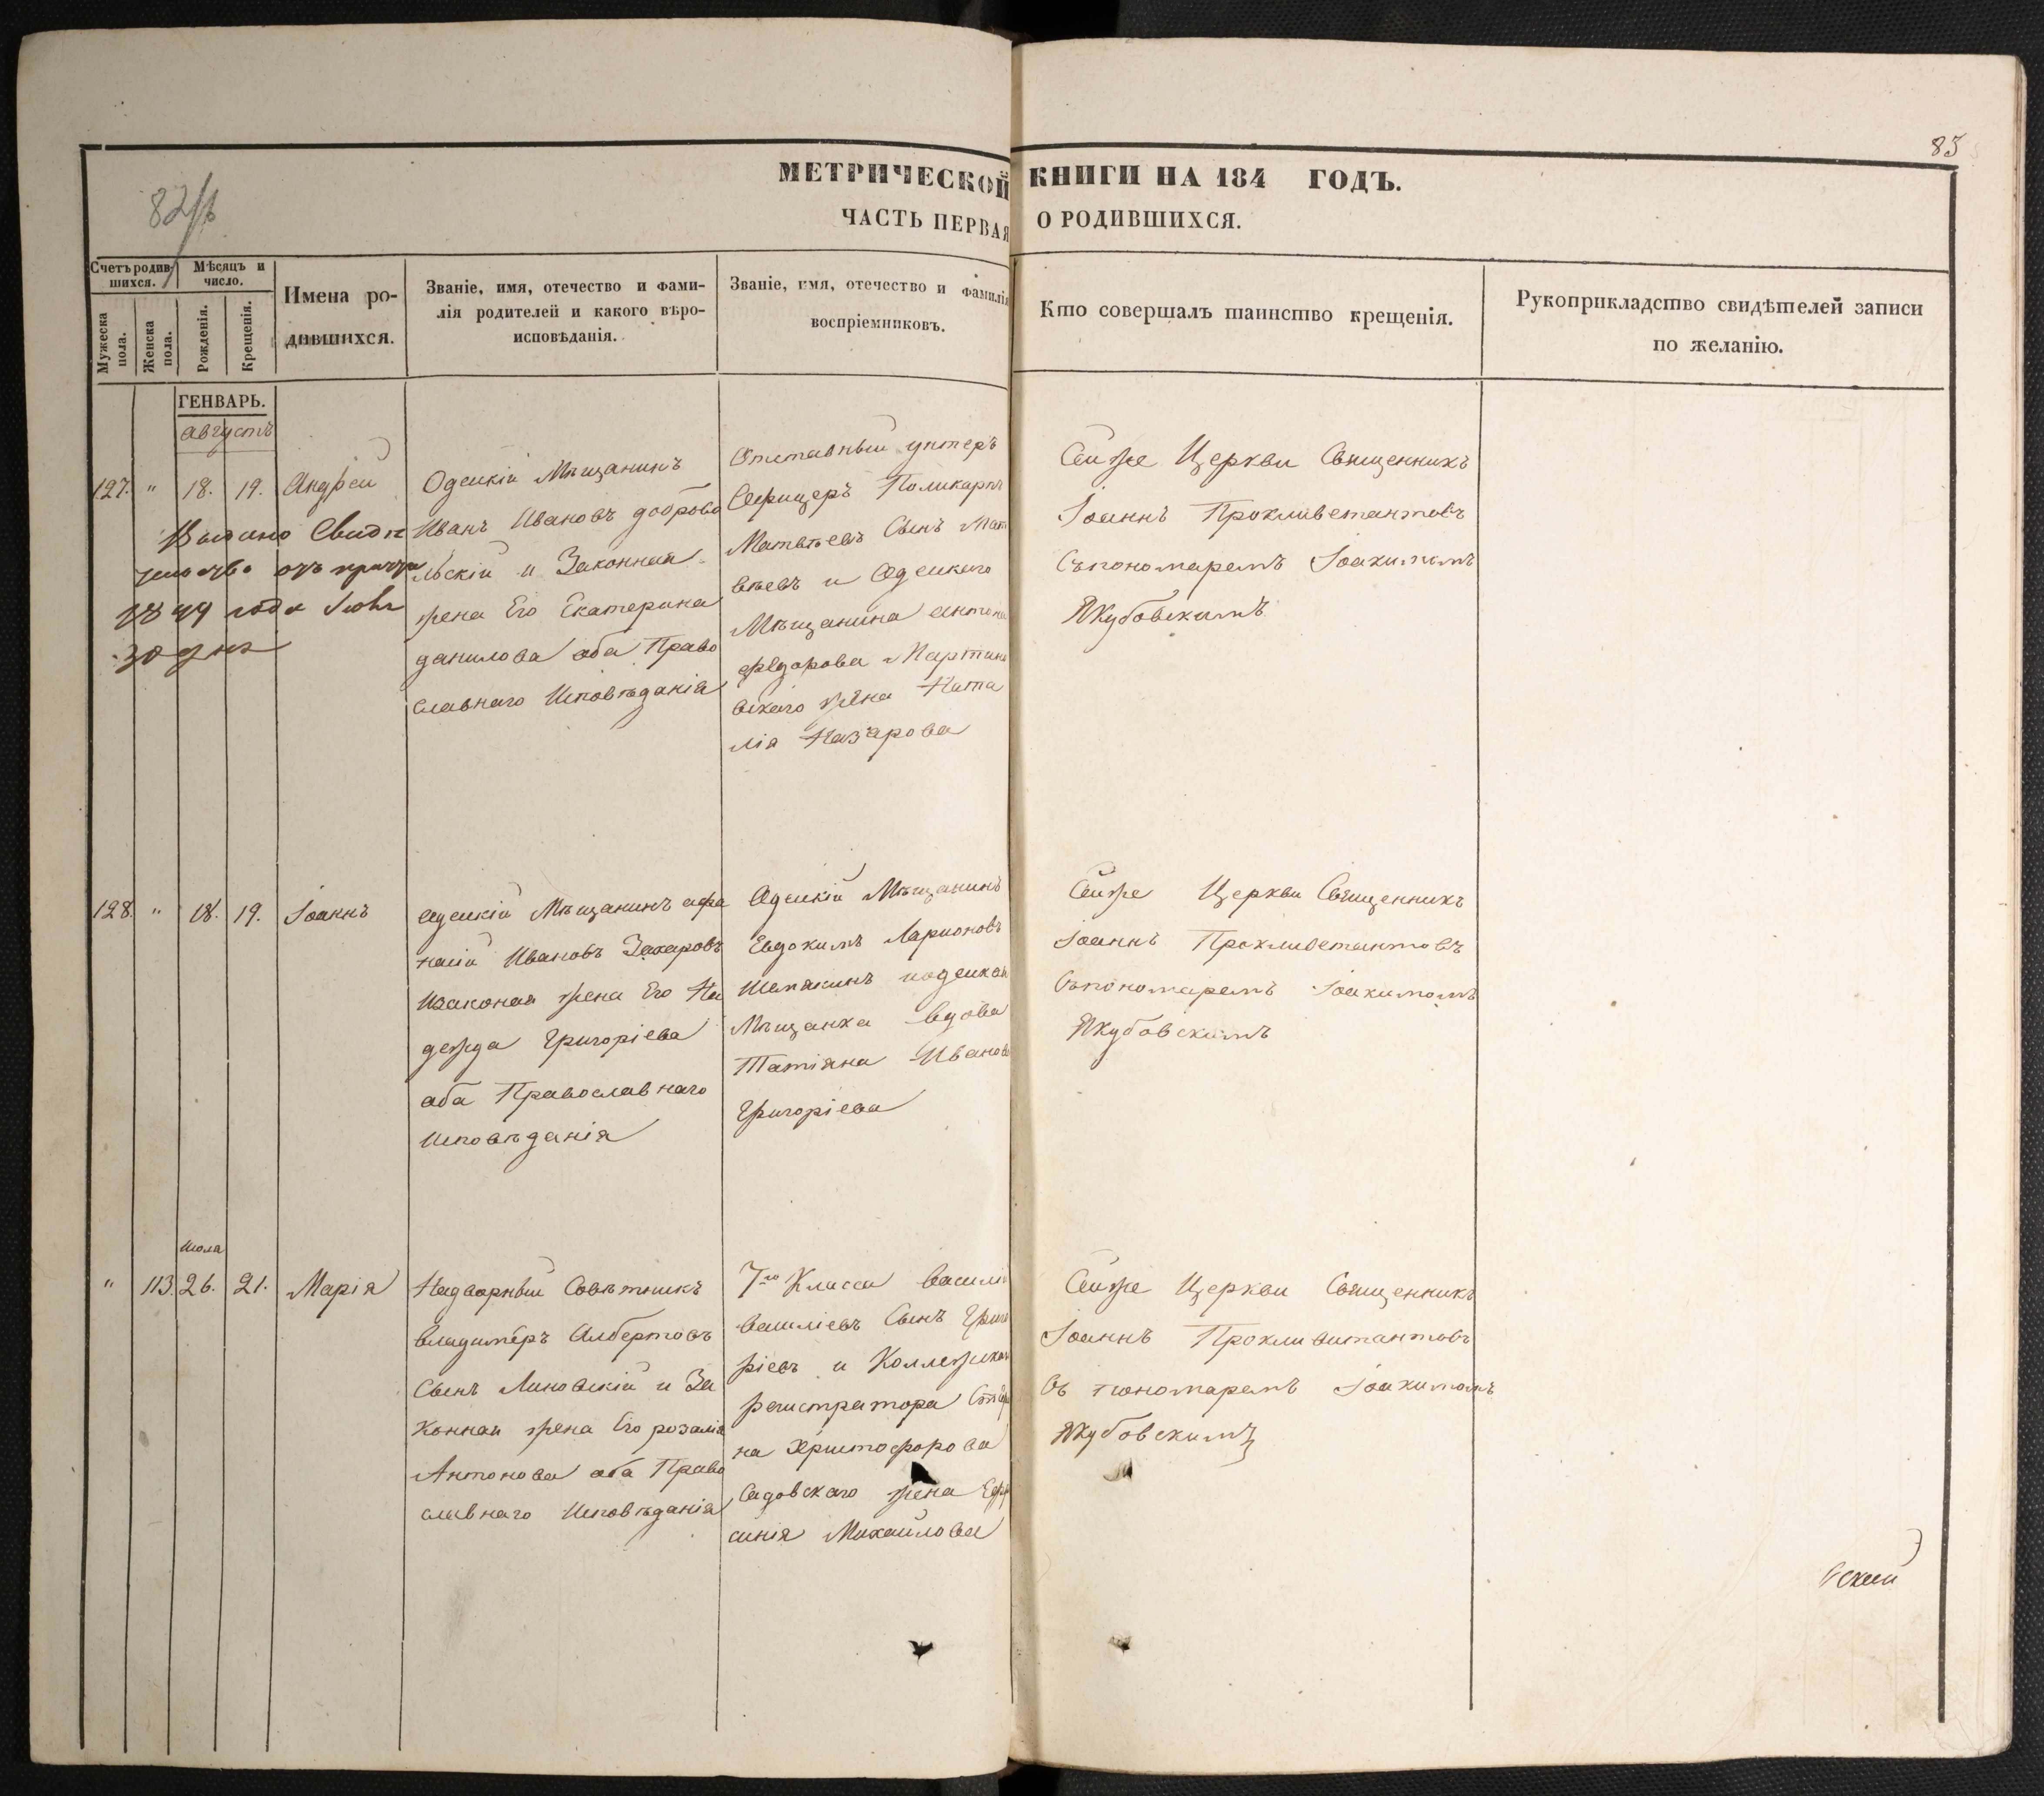 85
82/b
МЕТРИЧЕСКОЙ КНИГИ НА 184 ГОДЪ.
ЧАСТЬ ПЕРВАЯ О РОДИВШИХСЯ.
Счетъ родив-
шихся.
Мужеска
пола.
Женска
пола.
Мѣсяцъ и
число.
Рожденія.
Крещенія.
Имена ро-
дившихся.
Званіе, имя, отечество и фами-
лія родителей и какого вѣро-
исповѣданія.
Званіе, имя, отечество и фамилія
воспріемниковъ.
Кто совершалъ таинство крещенія.
Рукоприкладство свидѣтелей записи
по желанію.
ГЕНВАРЬ.
Августъ
127. " 18. 19. Андрей
Выдано Свидѣ
тельство отъ причта
1849 года
30 дня
Одескій Мѣщанинъ
Иванъ Ивановъ доброво
льскій и Законная
жена Его Екатерина
данилова оба Право
славнаго Исповѣданія
Отставный унтеръ
Офицеръ Поликарпъ
Матвѣевъ Сынъ Мат
вѣевъ и Одескаго
Мѣщанина Антона
федорова Мартин
вскаго жена Ната
лія Назарова
Сейже Церкви Священникъ
Іоаннъ
Съпономаремъ Іоакимомъ
Якубовскимъ
128. " 18. 19. Іоаннъ
Одескій Мѣщанинъ афа
насій Ивановъ Захаровъ
Изаконая жена Его На
дежда Григоріева
оба Православнаго
Исповѣданія
Одескій Мѣщанинъ
Евдокимъ Ларионовъ
Шемякинъ иодеская
Мѣщанка вдова
Татіяна Иванова
Григоріева
Сейже Церкви Священникъ
Іоаннъ
Съпономаремъ Іоакимомъ
Якубовскимъ
Июля
" 113. 26. 21. Марія
Надворный Совѣтникъ
Владимеръ Албертовъ
Сынъ Линовскій и За
конная жена Его розалія
Антонова оба Право
славнаго Исповѣданія
7го Класса Василій
Василіевъ Сынъ Григо
ріевъ и Коллежскаго
регистратора
на Христофорова
Садовскаго жена Ефро
синія Михайлова
Сейже Церкви Священникъ
Іоаннъ
Съ пономаремъ Іоакимомъ
Якубовскимъ